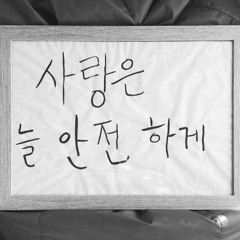 사랑은
늘 안전 하게